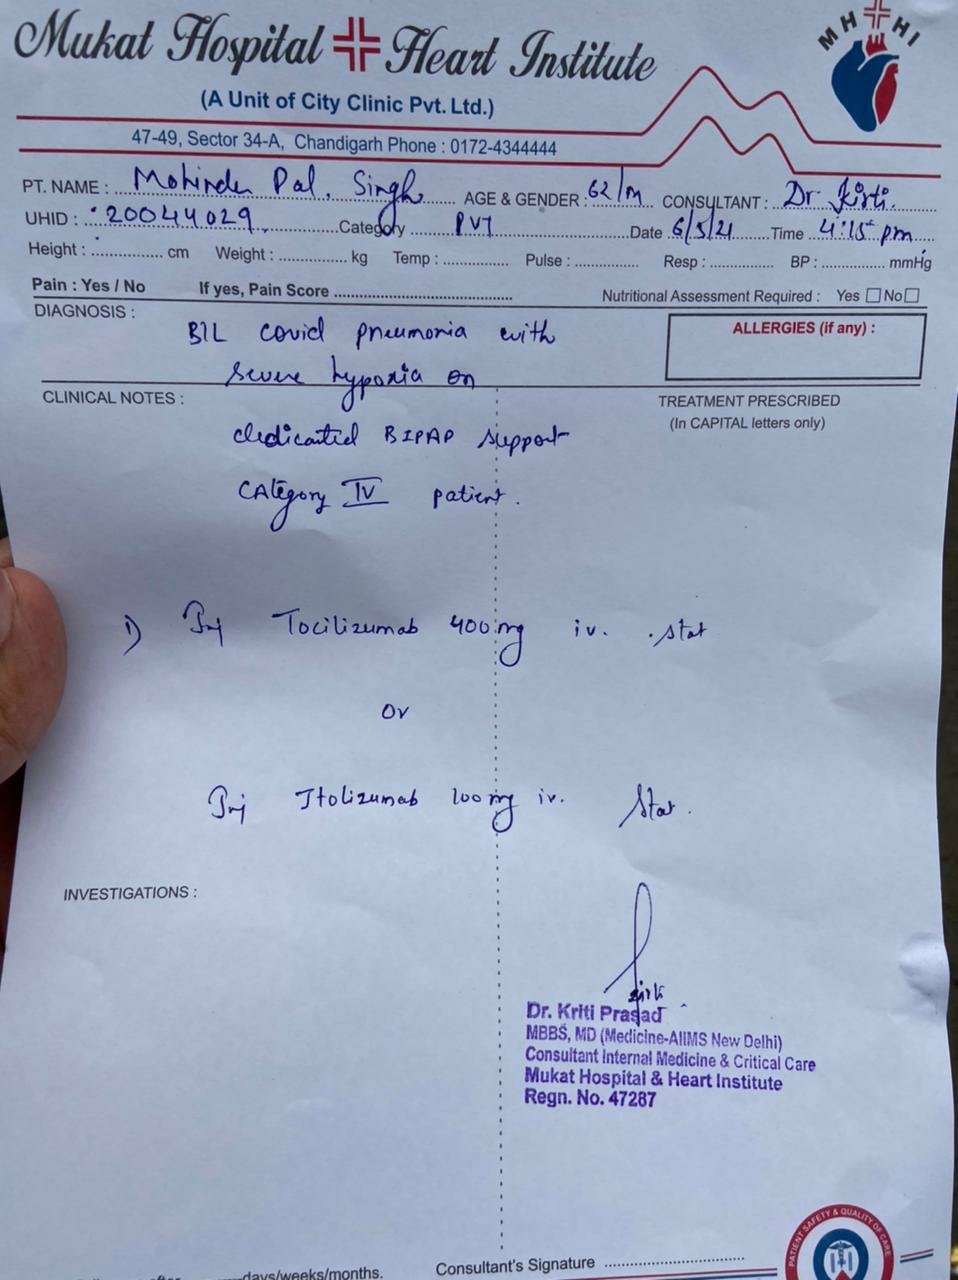 Mukat Hospital Heart Institute
MHHI
(A Unit of City Clinic Pvt. Ltd.)
47-49, Sector 34-A, Chandigarh Phone : 0172-4344444
PT. NAME : Mohinder Pal Singh AGE & GENDER : 62/M CONSULTANT : Dr Kirti
UHID : 20044029 Category PVT Date 6/5/21 Time 4:15 pm
Height : cm Weight : kg Temp : Pulse : Resp : BP : mmHg
Pain : Yes / No If yes, Pain Score Nutritional Assessment Required : Yes No
DIAGNOSIS :
ALLERGIES (if any) :
BIL covid pneumonia with
severe hypoxia on
CLINICAL NOTES :
TREATMENT PRESCRIBED
(In CAPITAL letters only)
dedicated BIPAP support
CAtegory IV patient.
1) Inj Tocilizumab 400 mg iv. stat
or
Inj Itolizumab 100 mg iv. Stat.
INVESTIGATIONS :
Dr. Kriti Prasad
MBBS, MD (Medicine-AIIMS New Delhi)
Consultant Internal Medicine & Critical Care
Mukat Hospital & Heart Institute
Regn. No. 47287
PATIENT SAFETY & QUALITY OF CARE
days/weeks/months. Consultant's Signature